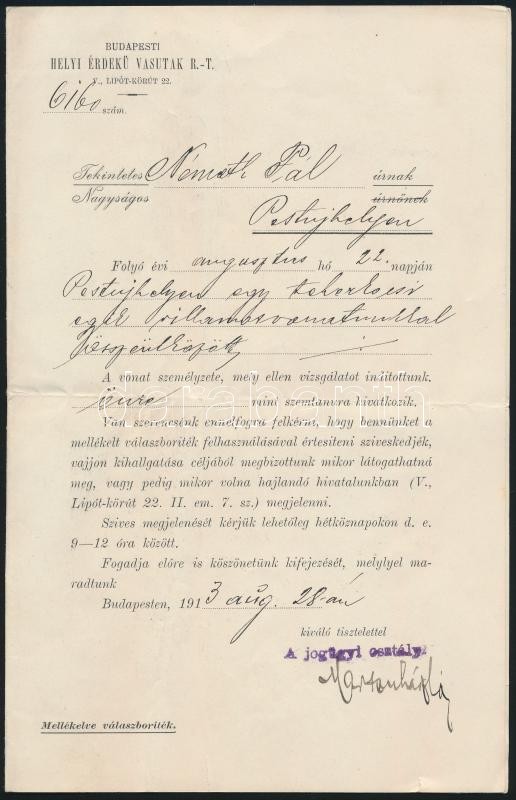 BUDAPESTI
HELYI ÉRDEKÜ VASUTAK R.-T.
V., LIPÓT-KÖRÚT 22.
6160 szám.
Tekintetes Németh Pál úrnak
Nagyságos úrnőnek
Pestujhelyen
Folyó évi augusztus hó 22. napján
Pestujhelyen egy
egyik villamosvonatunkkal
összeütközött
A vonat személyzete, mely ellen vizsgálatot indítottunk,
mint szemtanura hivatkozik.
Van szerencsénk ennélfogva felkérni, hogy bennünket a
mellékelt válaszboriték felhasználásával értesiteni sziveskedjék,
vajjon kihallgatása céljából megbizottunk mikor látogathatná
meg, vagy pedig mikor volna hajlandó hivatalunkban (V.,
Lipót-körút 22. II. em. 7. sz.) megjelenni.
Szives megjelenését kérjük lehetőleg hétköznapokon d. e.
9—12 óra között.
Fogadja előre is köszönetünk kifejezését, melylyel ma-
radtunk
Budapesten, 1913 aug. 28-án
kiváló tisztelettel
A jogügyi osztály:
Mellékelve válaszboriték.